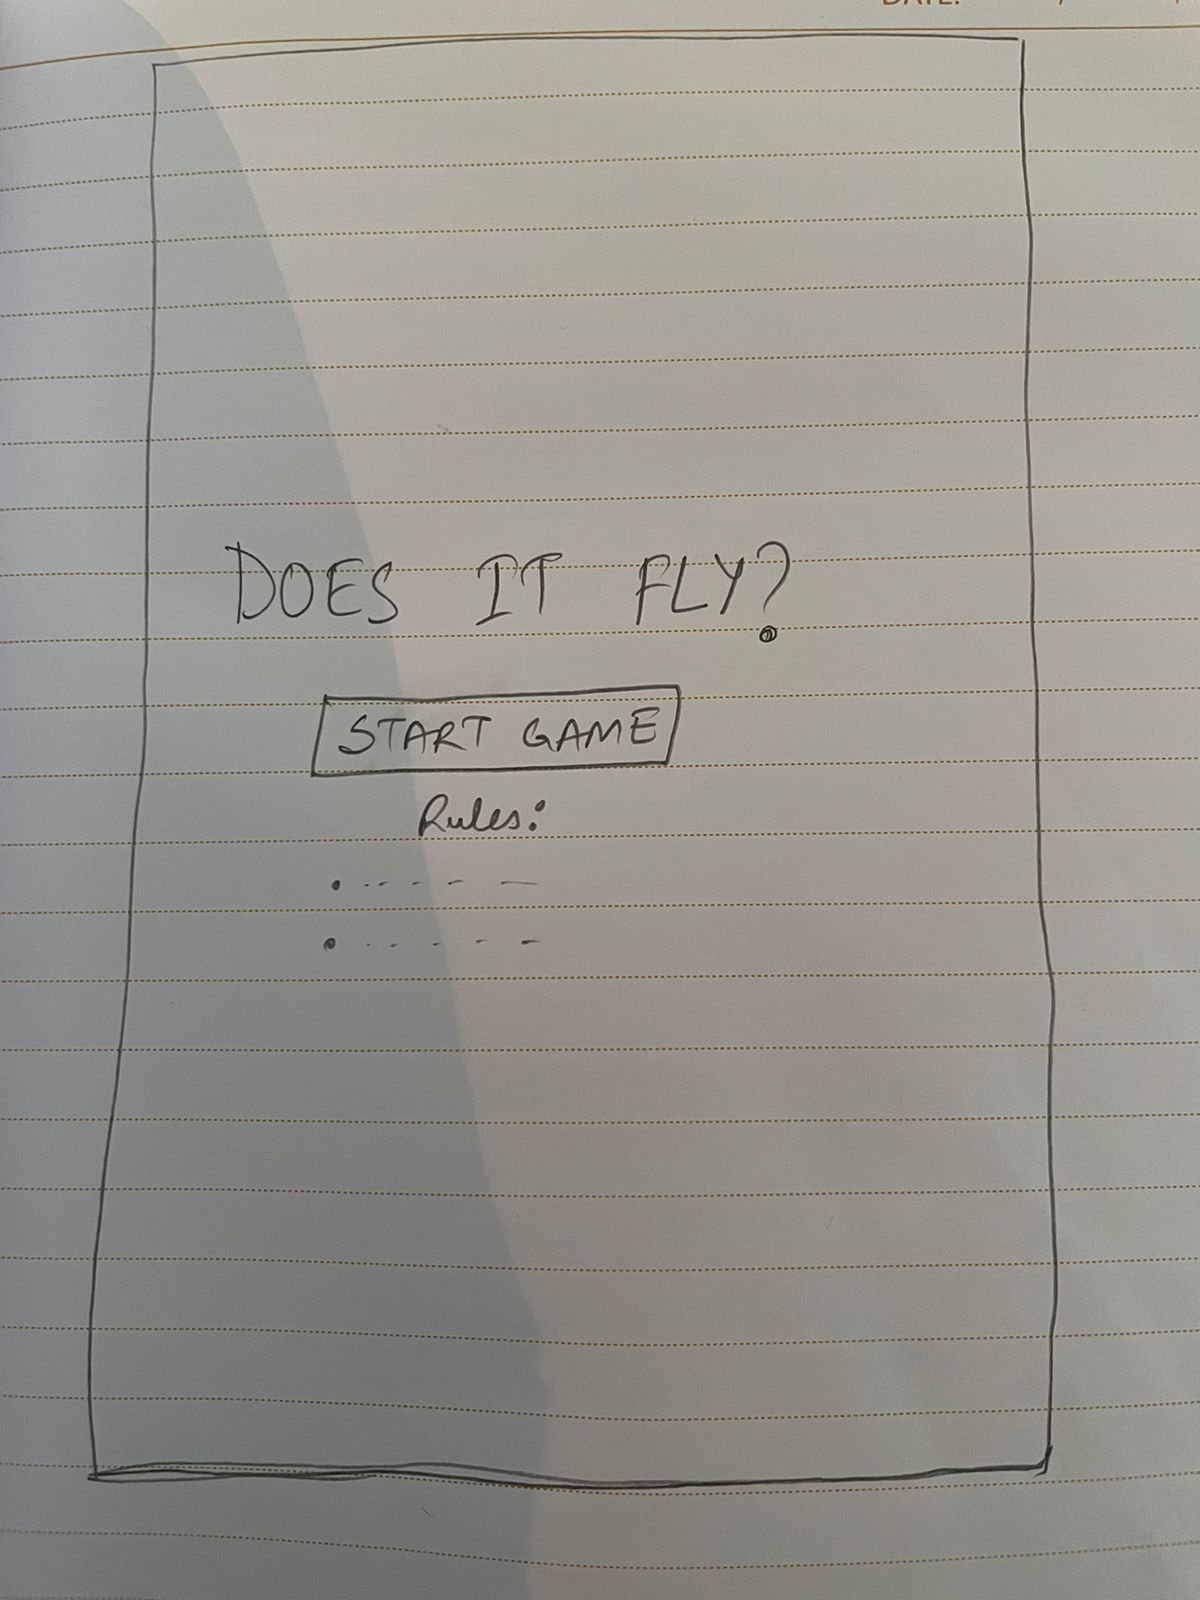 DATE:
DOES IT FLY?
START GAME
Rules: